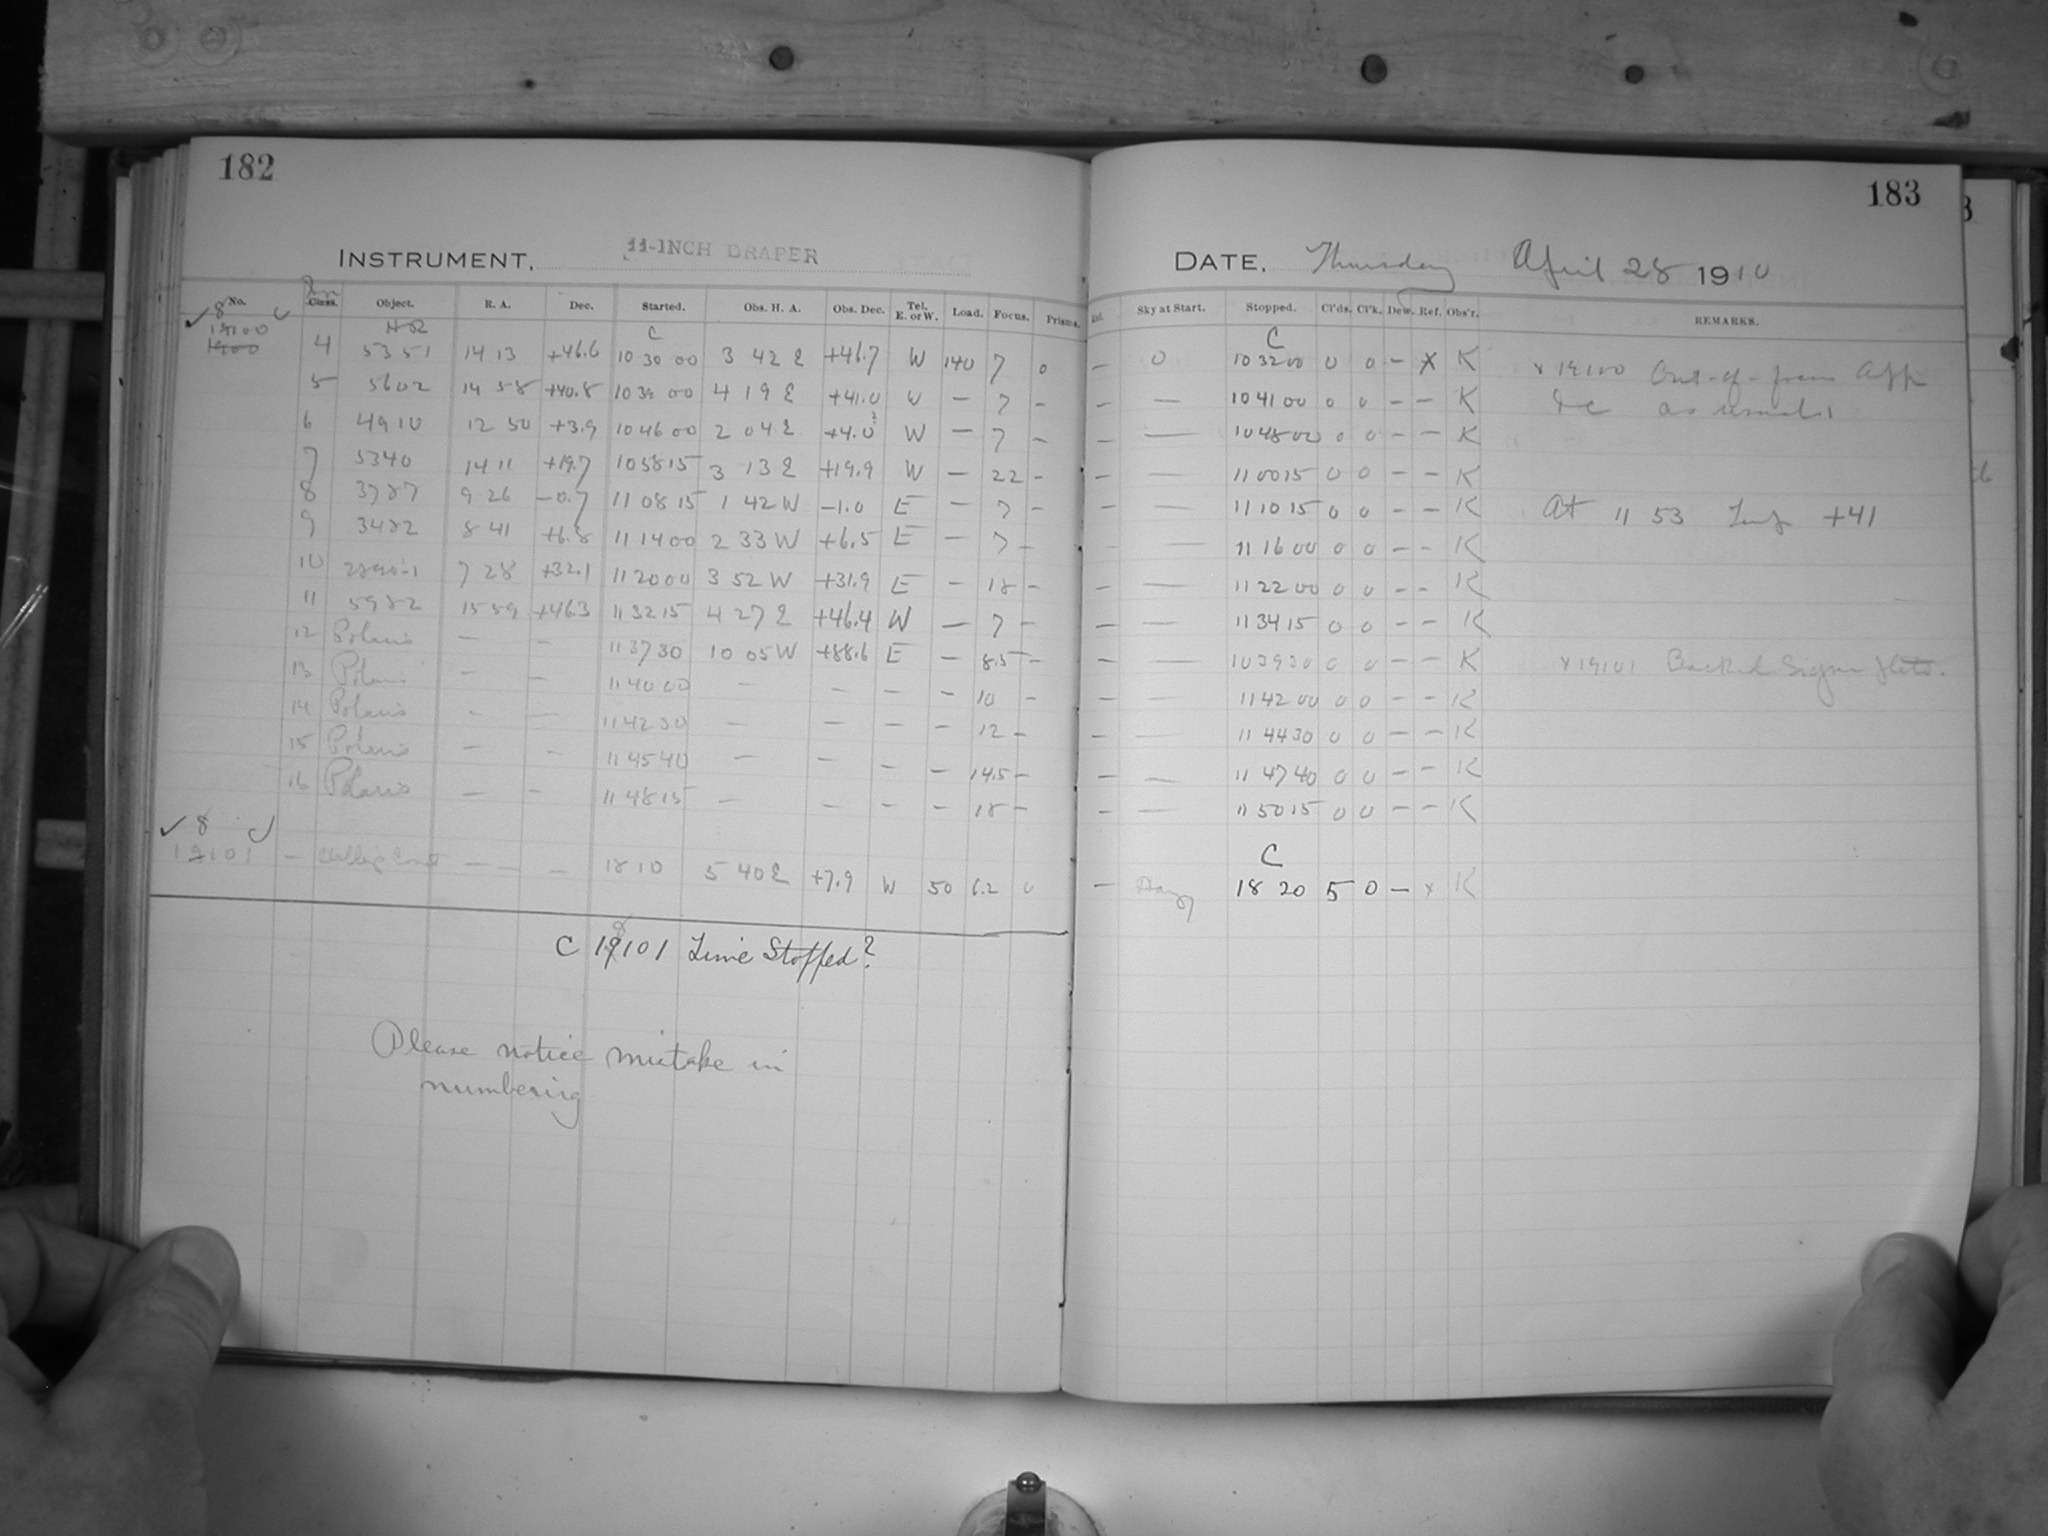 182
INSTRUMENT, 11-INCH DRAPER
No. Class. Object. R. A. Dec. Started. Obs. H. A. Obs. Dec. Tel. E. or W. Load. Focus. Prisms.
✓ 8 C
19100 HR C
1900 4 5351 14 13 +46.6 10 30 00 3 42 E +46.7 W 140 7 0
5 5602 14 58 +40.8 10 39 00 4 19 E +41.0 W — 7 –
6 4910 12 50 +3.9 10 46 00 2 04 E +4.0? W — 7 –
7 5340 14 11 +19.7 10 58 15 3 13 E +19.9 W — 22 –
8 3787 9 26 –0.7 11 08 15 1 42 W –1.0 E — 7 –
9 3482 8 41 +6.8 11 14 00 2 33 W +6.5 E — 7 –
10 7 28 +32.1 11 20 00 3 52 W +31.9 E – 18 –
11 5982 15 59 +46.3 11 32 15 4 27 E +46.4 W — 7 –
12 Polaris — – 11 37 30 10 05 W +88.6 E — 8.5 –
13 Polaris – – 11 40 00 — – – – 10 –
14 Polaris – — 11 42 30 — – – – 12 –
15 Polaris — – 11 45 40 — – – – 14.5 –
16 Polaris — – 11 48 15 — – – – 18 –
✓ 8 C
19101 – — – 18 10 5 40 E +7.9 W 50 6.2 0
C 19101 Time Stopped?
8
Please notice mistake in
numbering
183
DATE, Thursday April 28 1910
Sky at Start. Stopped. Cl'ds. Cl'k. Dew. Ref. Obs'r. REMARKS.
C
– 0 10 32 00 0 0 – x K x 19100 Out-of-focus App
– — 10 41 00 0 0 – – K &c as usual
– — 10 48 00 0 0 – – K
– — 11 00 15 0 0 – – K
– — 11 10 15 0 0 – – K At 11 53 +41
– — 11 16 00 0 0 – – K
– — 11 22 00 0 0 – – K
– — 11 34 15 0 0 – – K
– — 10 39 30 0 0 – – K x 19101 Backed Sigma
– — 11 42 00 0 0 – – K
– — 11 44 30 0 0 – – K
– — 11 47 40 0 0 – – K
– — 11 50 15 0 0 – – K
C
– Hazy 18 20 5 0 – x K